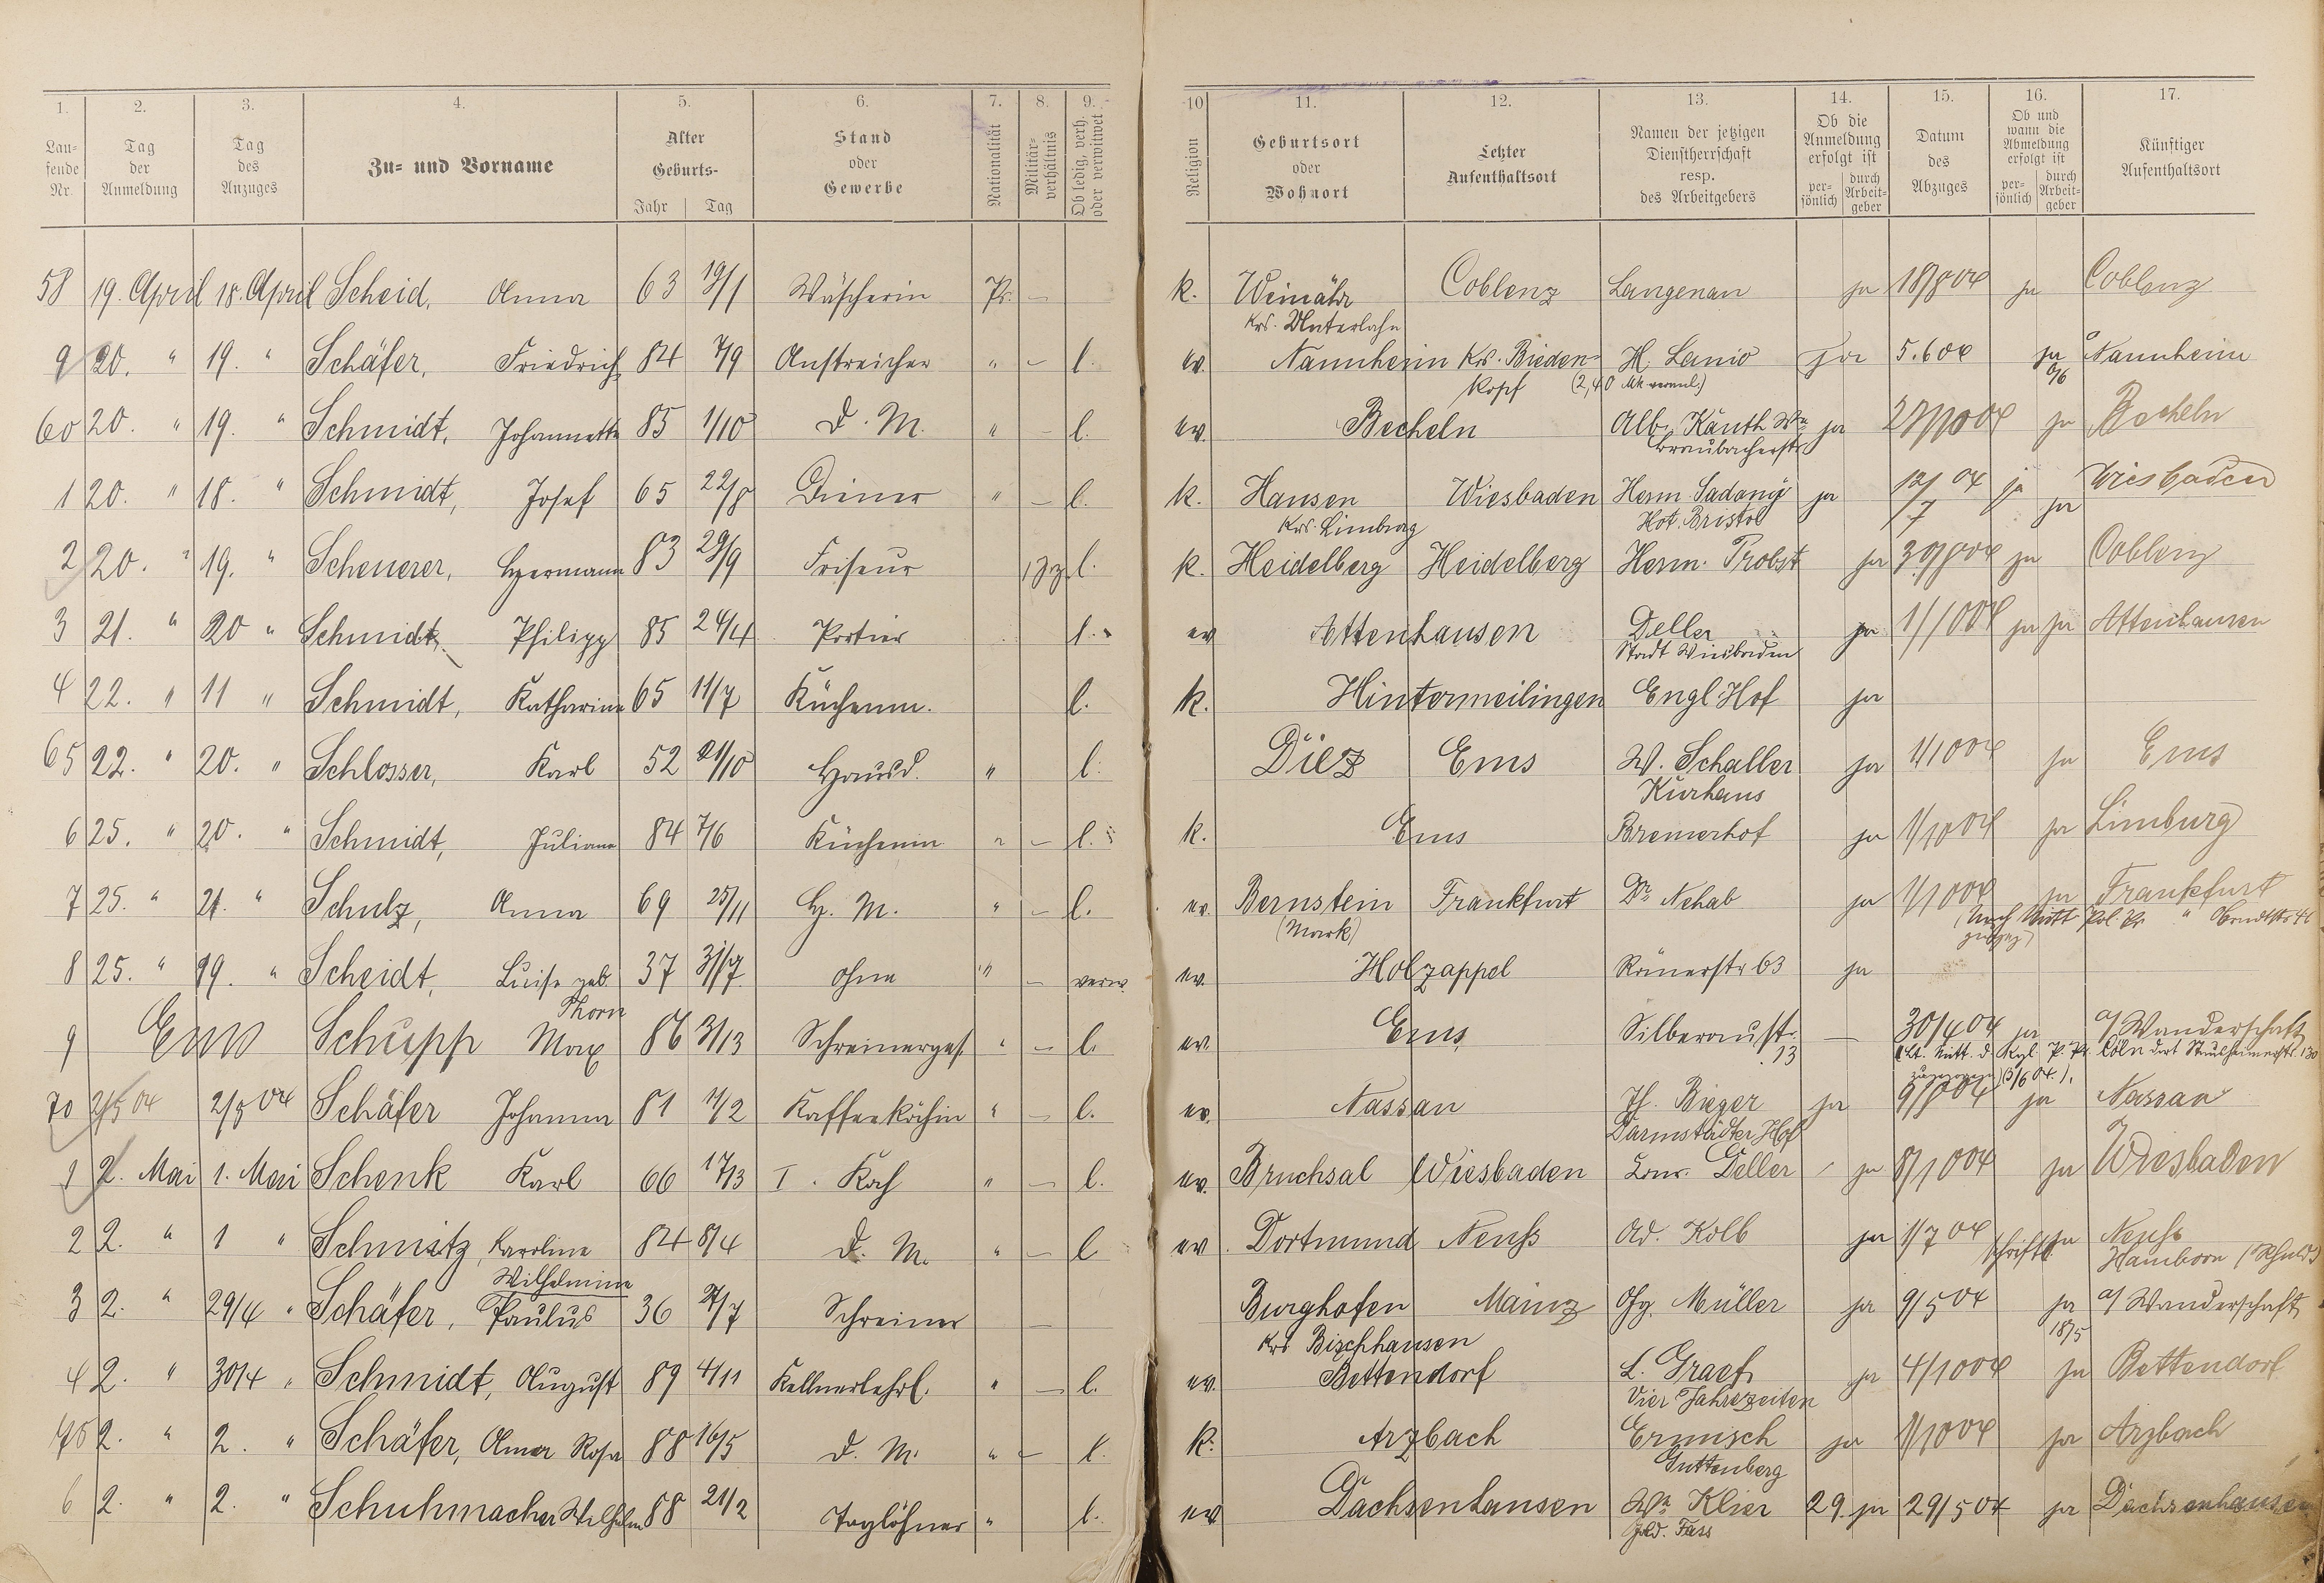 1. 2. 3. 4. 5. 6. 7. 8. 9. 10 11. 12. 13. 14. 15. 16. 17.
Lau-
fende
Nr.
Tag
der
Anmeldung
Tag
des
Anzuges
Zu- und Vorname
Alter
Geburts-
Jahr Tag
Stand
oder
Gewerbe
Nationalität
Militär-
verhältnis
Ob ledig, verh.
oder verwitwet
Religion
Geburtsort
oder
Wohnort
Letzter
Aufenthaltsort
Namen der jetzigen
Dienstherrschaft
resp.
des Arbeitgebers
Ob die
Anmeldung
erfolgt ist
per-
sönlich
durch
Arbeit-
geber
Datum
des
Abzuges
Ob und
wann die
Abmeldung
erfolgt ist
per-
sönlich
durch
Arbeit-
geber
Künftiger
Aufenthaltsort
58 19. April 18. April Scheid, Anna 63 19/1 Wäscherin Pr. – k. Weinähr Coblenz Langenau ja 18/8 04 ja Coblenz
Krs. Unterlahn
9 20. " 19. " Schäfer, Friedrich 84 7/9 Anstreicher " – l. ev. Nannheim Krs. Bieden- H. Lanio ja 5.6 04 ja Nannheim
kopf
60 20. " 19. " Schmidt, Johannette 85 1/10 D. M. " – l. ev. Becheln Alb. Kauth Ww ja 27/10 04 ja Becheln
Braubacherstr.
1 20. " 18. " Schmidt, Josef 65 22/8 Diener " – l. k. Hausen Wiesbaden Herm. Sadony ja 12/7 04 ja ja Wiesbaden
Krs. Limburg Hot. Bristol
2 20. " 19. " Scheuerer, Hermann 83 29/9 Friseur l. k. Heidelberg Heidelberg Herm. Probst ja 30/8 04 ja Coblenz
3 21. " 20 " Schmidt, Philipp 85 24/4 Portier l. ev Attenhausen Deller ja 1/10 04 ja ja Attenhausen
Stadt Wiesbaden
4 22. " 11 " Schmidt, Katharina 65 11/7 Küchenm. l. k. Hintermeilingen Engl. Hof ja
65 22. " 20. " Schlosser, Karl 52 21/10 Hausd. " l. Diez Ems W. Schaller ja 1/10 04 ja Ems
Kurhaus
6 25. " 20. " Schmidt, Juliana 84 7/6 Küchenm " – l. k. Ems Bremerhof ja 1/10 04 ja Limburg
7 25. " 21. " Schulz, Anna 69 25/11 H. M. " – l. ev. Bernstein Frankfurt Dr. Nehab ja 1/10 04 ja Frankfurt
(Mark)
8 25. " 19. " Scheidt, Luise geb. 37 31/7 ohne " – verw. ev. Holzappel Römerstr 63 ja
Thorn
9 Ems Schupp Max 86 31/3 Schreinerges. " – l. ev. Ems Silberaustr. – 30/4 04 ja a/ Wanderschaft
13
70 2/5 04 2/5 04 Schäfer Johanna 81 11/2 Kaffeeköchin " – l. ev. Nassau Jh. Bieger ja 9/8 04 ja Nassau
Darmstädter Hof
1 2. Mai 1. Mai Schenk Karl 66 17/3 I. Koch " – l. ev. Bruchsal Wiesbaden Deller ja 8/10 04 ja Wiesbaden
2 2. " 1 " Schmitz, Karoline 84 8/4 D. M. " – l ev. Dortmund Neuss Ad. Kolb ja 1/7 04 schriftl ja Neuss
Wilhelmine Hamborn
3 2. " 29/4 " Schäfer, Paulus 36 27/7 Schreiner – Burghofen Mainz Müller ja 9/5 04 ja a/ Wanderschaft
Krs Bischhausen 18/5
4 2. " 30/4 " Schmidt, August 89 4/11 Kellnerlehrl. " – l. ev. Bettendorf L. Graef ja 4/10 04 ja Bettendorf
Vier Jahrezeiten
75 2. " 2. " Schäfer, Anna Rosa 88 16/5 D. M. " – l. k. Arzbach Ermisch ja 1/10 04 ja Arzbach
Guttenberg
6 2. " 2. " Schuhmacher Wilhelm 88 21/2 Taglöhner " l. ev Dachsenhausen Klier 29. ja 29/5 04 ja Dachsenhausen
Gold. Fass